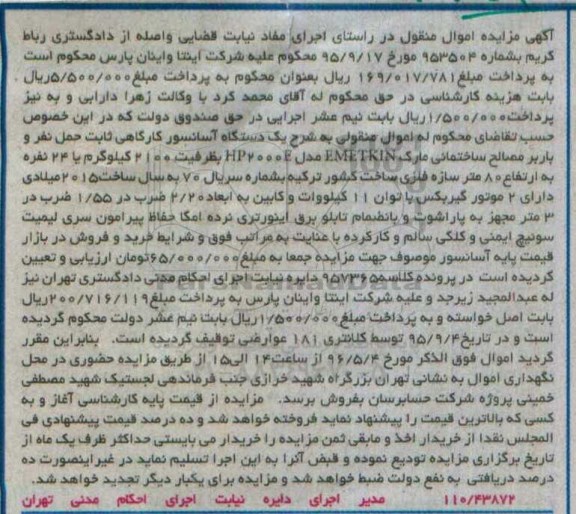 آگهی مزایده اموال منقول در راستای اجرای مفاد نیابت قضایی واصله از دادگستری رباط
کریم بشماره ۹۵۳۵۰۴ مورخ ۹۵/۹/۱۷ محکوم علیه شرکت اینتا واینان پارس محکوم است
به پرداخت مبلغ ۱۶۹/۰۱۷/۷۸۱ ریال بعنوان محکوم به پرداخت مبلغ ۵/۵۰۰/۰۰۰ریال
بابت هزینه کارشناسی در حق محکوم له آقای محمد کرد با وکالت زهرا دارابی و به نیز
پرداخت ۱/۵۰۰/۰۰۰ریال بابت نیم عشر اجرایی در حق صندوق دولت که در این خصوص
حسب تقاضای محکوم له اموال منقولی به شرح یک دستگاه آسانسور کارگاهی ثابت حمل نفر و
باربر مصالح ساختمانی مارک EMETKIN مدل HP۲۰۰۰E بظرفیت ۲۱۰۰ کیلوگرم یا ۲۴ نفره
به ارتفاع ۸۰ متر سازه فلزی ساخت کشور ترکیه بشماره سریال ۷۰ به سال ساخت ۲۰۱۵میلادی
دارای ۲ موتور گیربکس با توان ۱۱ کیلووات و کابین به ابعاد ۲/۲۰ ضرب در ۱/۵۵ ضرب در
۳ متر مجهز به پاراشوت و بانضمام تابلو برق اینورتری نرده امکا حفاظ پیرامون سری لیمیت
سوئیچ ایمنی و کلگی سالم و کارکرده با عنایت به مراتب فوق و شرایط خرید و فروش در بازار
قیمت پایه آسانسور موصوف جهت مزایده جمعا به مبلغ ۶۵/۰۰۰/۰۰۰تومان ارزیابی و تعیین
گردیده است در پرونده کلاسه ۹۵۷۳۶۵ دایره نیابت اجرای احکام مدنی دادگستری تهران نیز
له عبدالمجید زیرجد و علیه شرکت اینتا واینان پارس به پرداخت مبلغ ۲۰۰/۷۱۶/۱۱۹ریال
بابت اصل خواسته و به پرداخت مبلغ ۱/۵۰۰/۰۰۰ریال بابت نیم عشر دولت محکوم گردیده
است و در تاریخ ۹۵/۹/۴ توسط کلانتری ۱۸۱ عوارضی توقیف گردیده است. بنابراین مقرر
گردید اموال فوق الذکر مورخ ۹۶/۵/۴ از ساعت ۱۴ الی ۱۵ از طریق مزایده حضوری در محل
نگهداری اموال به نشانی تهران بزرگراه شهید خرازی جنب فرماندهی لجستیک شهید مصطفی
خمینی پروژه شرکت حسابرسان بفروش برسد. مزایده از قیمت پایه کارشناسی آغاز و به
کسی که بالاترین قیمت را پیشنهاد نماید فروخته خواهد شد و ده درصد قیمت پیشنهادی فی
المجلس نقدا از خریدار اخذ و مابقی ثمن مزایده را خریدار می بایستی حداکثر ظرف یک ماه از
تاریخ برگزاری مزایده تودیع نموده و قبض آنرا به این اجرا تسلیم نماید در غیراینصورت ده
درصد دریافتی به نفع دولت ضبط خواهد شد و مزایده برای یکبار دیگر تجدید خواهد شد.
۱۱۰/۴۳۸۷۲ مدیر اجرای دایره نیابت اجرای احکام مدنی تهران